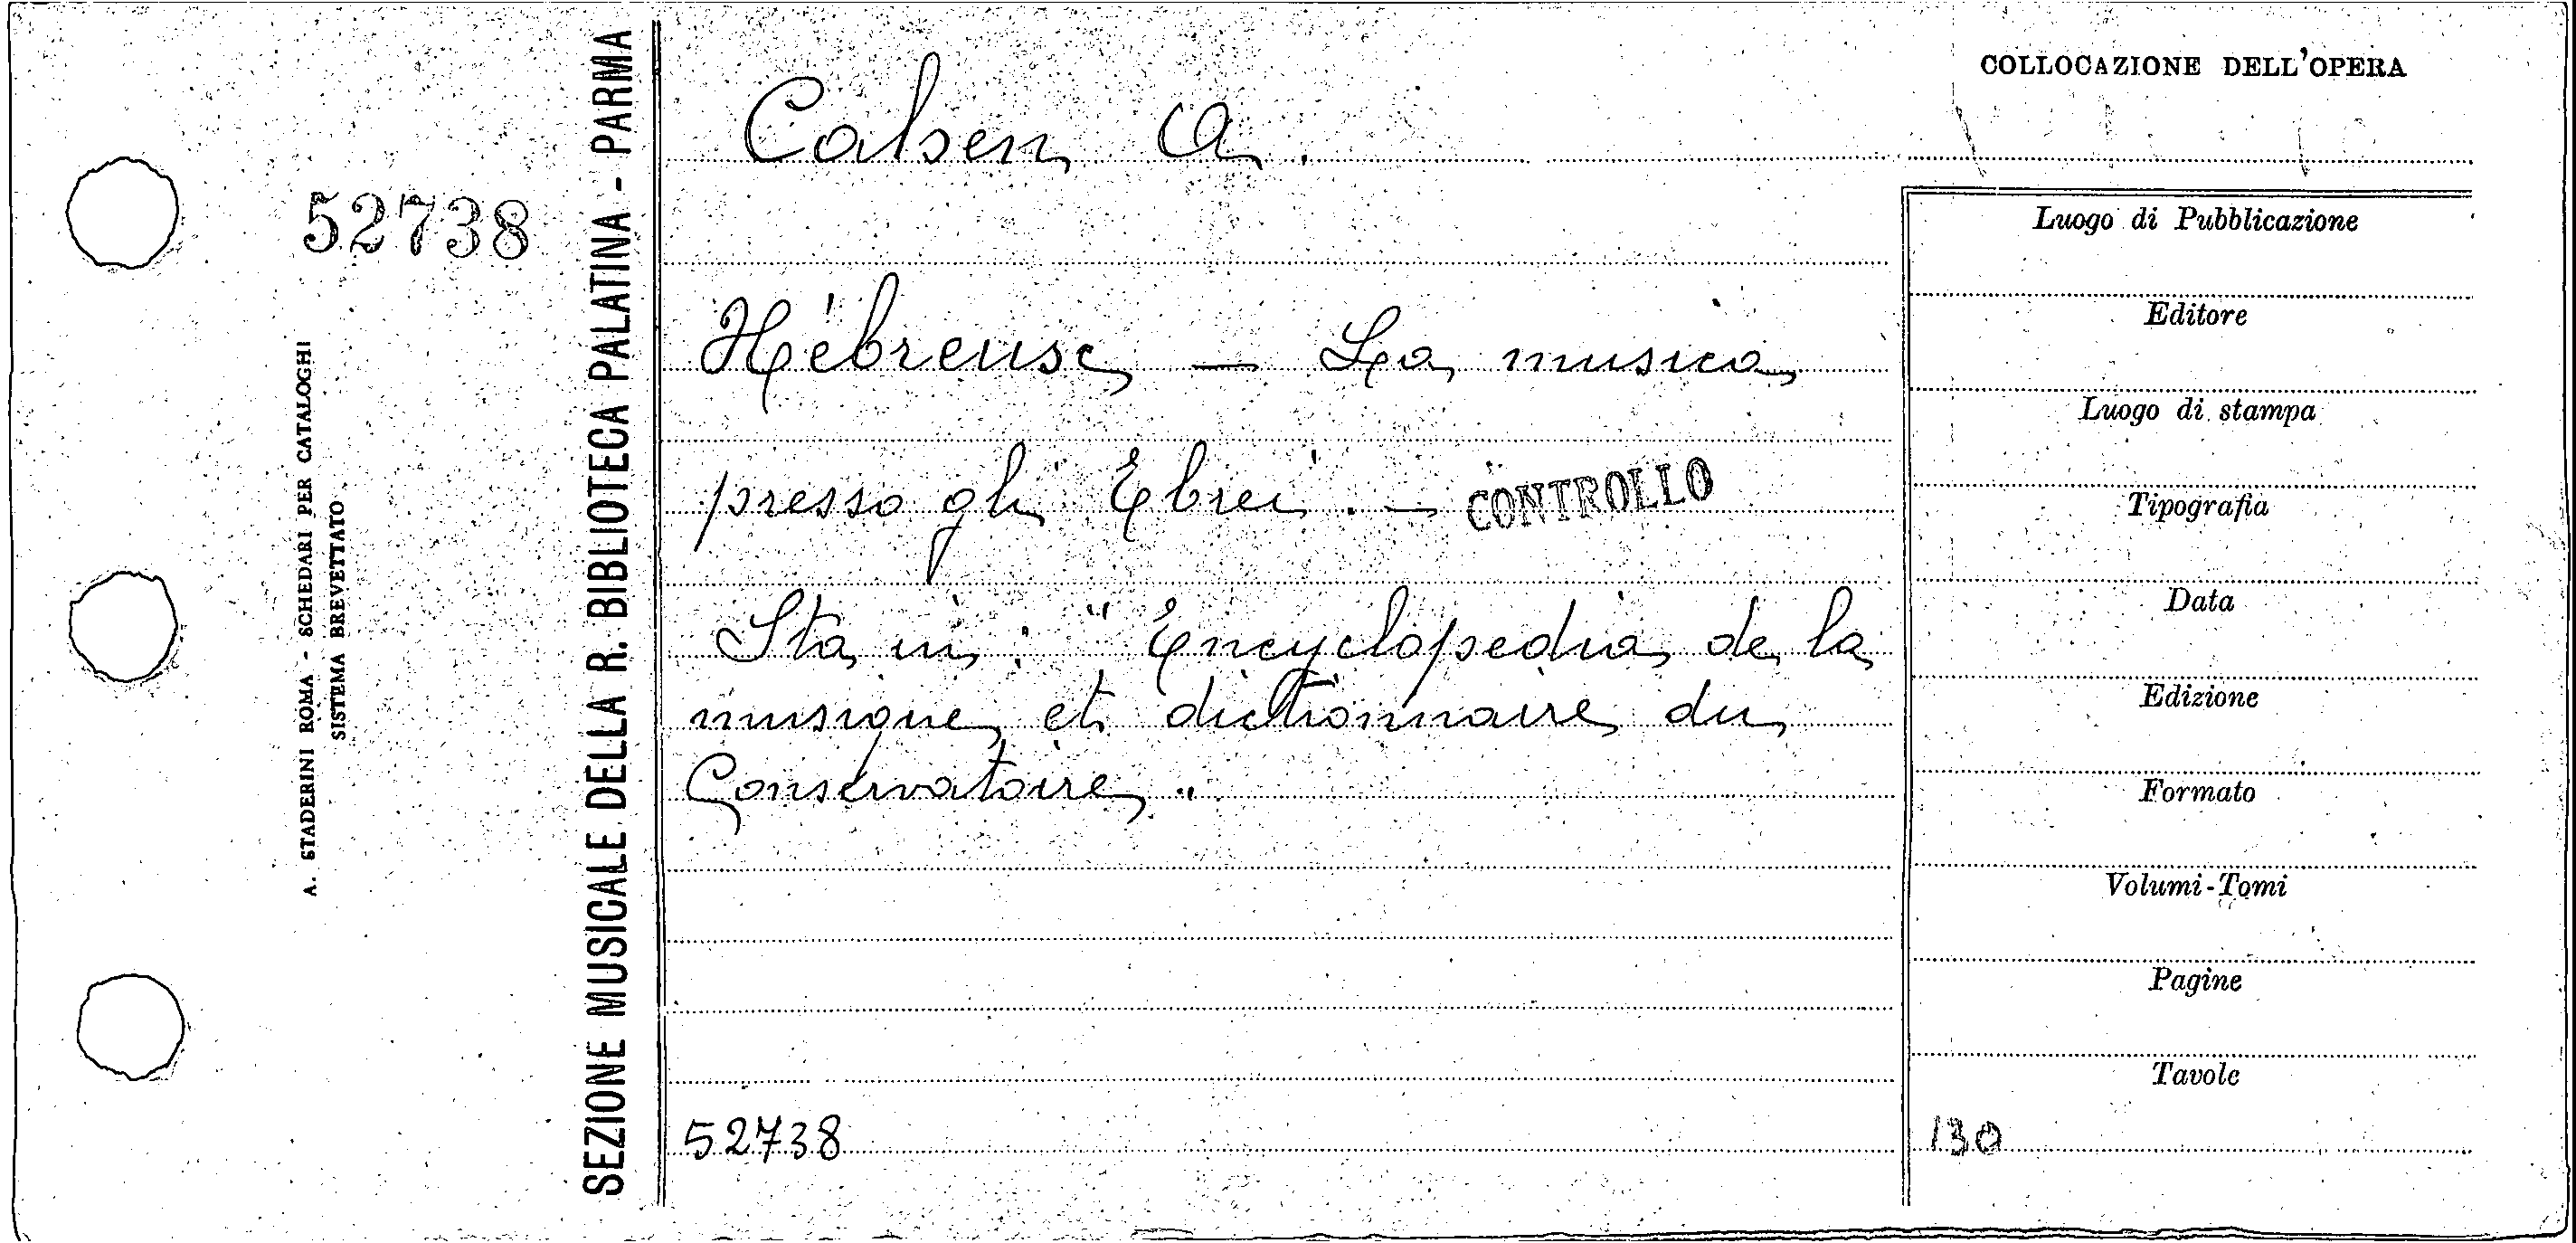 COLLOCAZIONE DELL'OPERA
Cahen A.
52738
Hébreuse - La musica
presso gli Ebrei. - CONTROLLO
Sta in: "Encyclopedia de la
musique et dictionnaire du
Conservatoire"
52738
Luogo di Pubblicazione
Editore
Luogo di stampa
Tipografia
Data
Edizione
Formato
Volumi-Tomi
Pagine
Tavole
130
SEZIONE MUSICALE DELLA R. BIBLIOTECA PALATINA - PARMA
A. STADERINI ROMA - SCHEDARI PER CATALOGHI
SISTEMA BREVETTATO